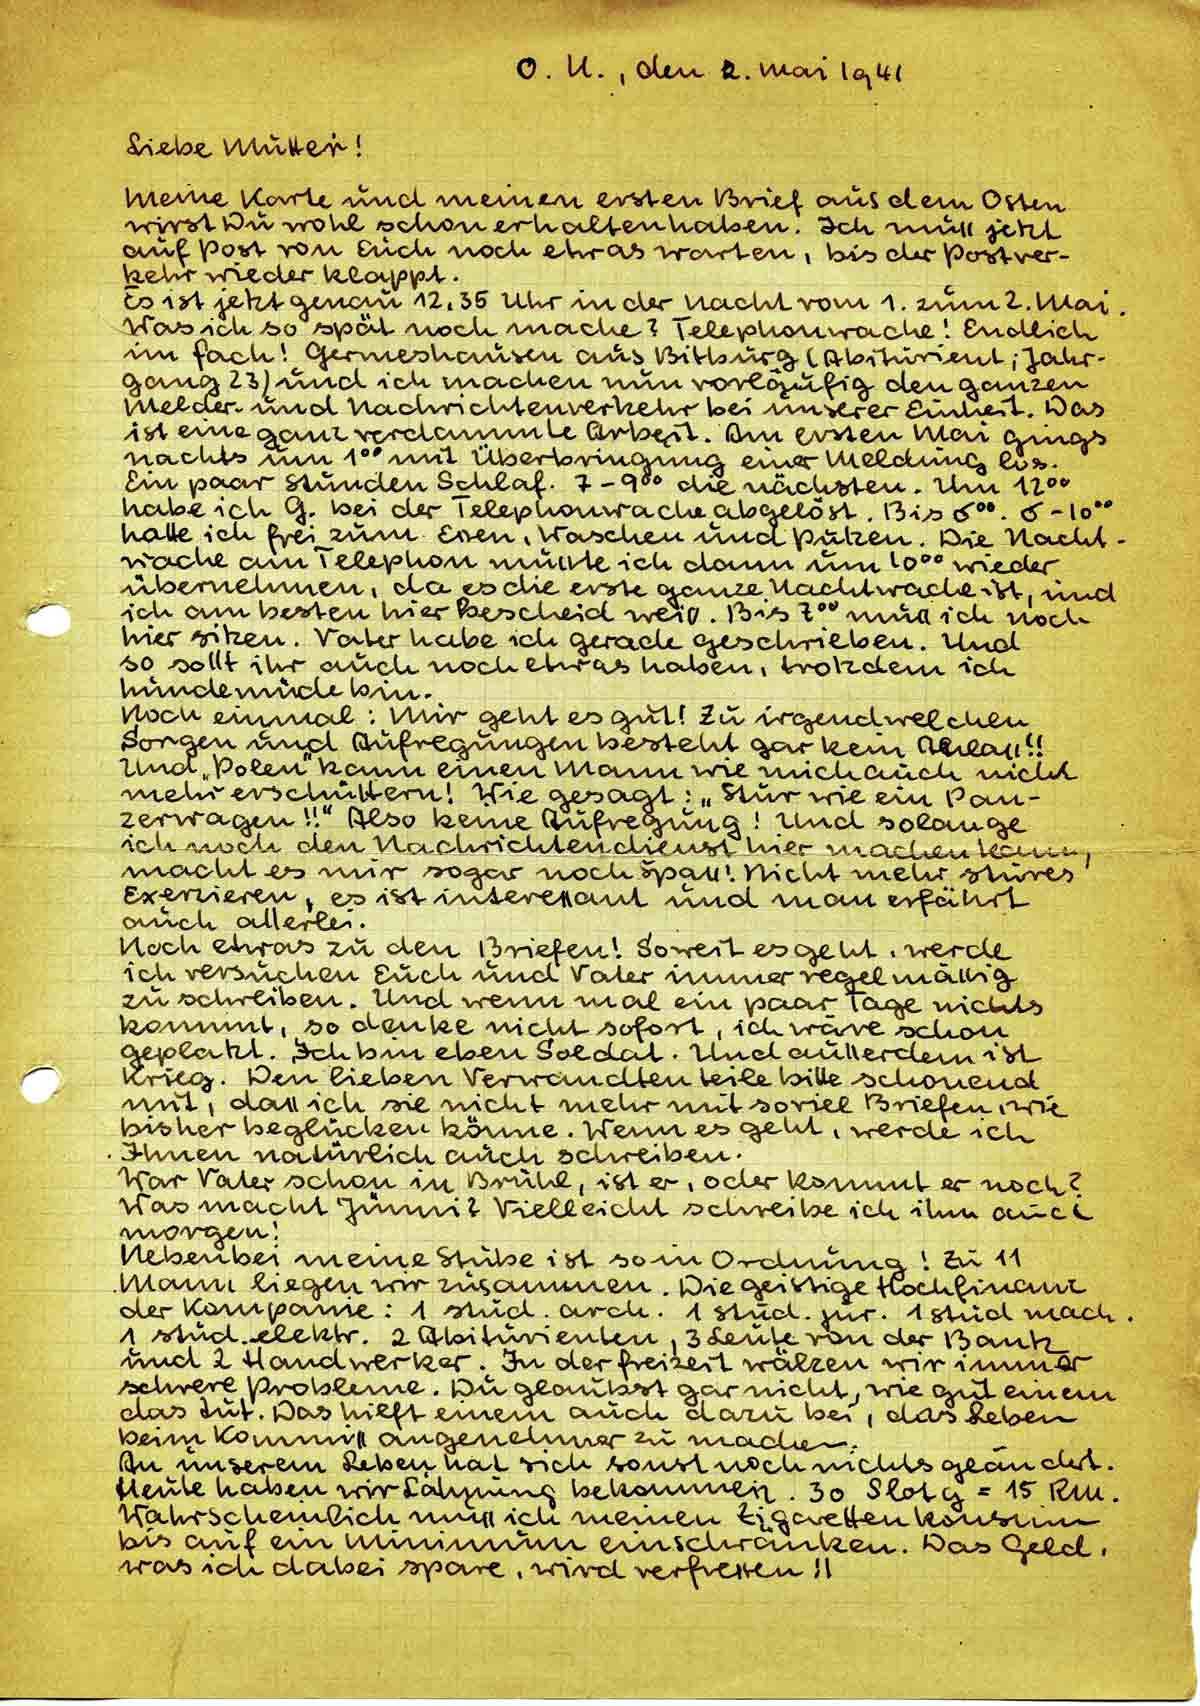 O. U., den 2. Mai 1941
Liebe Mutter!
Meine Karte und meinen ersten Brief aus dem Osten
wirst Du wohl schon erhalten haben. Ich muß jetzt
auf Post von Euch noch etwas warten, bis der Postver-
kehr wieder klappt.
Es ist jetzt genau 12.35 Uhr in der Nacht vom 1. zum 2. Mai.
Was ich so spät noch mache? Telephonwache! Endlich
im Fach! Germeshausen aus Bitburg (Abiturient; Jahr-
gang 23) und ich machen nun vorläufig den ganzen
Melder- und Nachrichtenverkehr bei unserer Einheit. Das
ist eine ganz verdammte Arbeit. Am ersten Mai gings
nachts um 1⁰⁰ mit Überbringung einer Meldung los.
Ein paar Stunden Schlaf. 7 - 9⁰⁰ die nächsten. Um 12⁰⁰
habe ich G. bei der Telephonwache abgelöst. Bis 6⁰⁰. 6 - 10⁰⁰
hatte ich frei zum Essen, Waschen und Putzen. Die Nacht-
wache am Telephon mußte ich dann um 10⁰⁰ wieder
übernehmen, da es die erste ganze Nachtwache ist, und
ich am besten hier Bescheid weiß. Bis 7⁰⁰ muß ich noch
hier sitzen. Vater habe ich gerade geschrieben. Und
so sollt ihr auch noch etwas haben, trotzdem ich
hundemüde bin.
Noch einmal: Mir geht es gut! Zu irgendwelchen
Sorgen und Aufregungen besteht gar kein Anlaß!!
Und „Polen" kann einen Mann wie mich auch nicht
mehr erschüttern! Wie gesagt: „Stur wie ein Pan-
zerwagen!!" Also keine Aufregung! Und solange
ich noch den Nachrichtendienst hier machen kann,
macht es mir sogar noch Spaß! Nicht mehr stures
Exerzieren, es ist interessant und man erfährt
auch allerlei.
Noch etwas zu den Briefen! Soweit es geht, werde
ich versuchen Euch und Vater immer regelmäßig
zu schreiben. Und wenn mal ein paar Tage nichts
kommt, so denke nicht sofort, ich wäre schon
geplatzt. Ich bin eben Soldat. Und außerdem ist
Krieg. Den lieben Verwandten teile bitte schonend
mit, daß ich sie nicht mehr mit soviel Briefen, wie
bisher beglücken könne. Wenn es geht, werde ich
Ihnen natürlich auch schreiben.
War Vater schon in Brühl, ist er, oder kommt er noch?
Was macht Jümmi? Vielleicht schreibe ich ihm auch
morgen!
Nebenbei meine Stube ist so in Ordnung! Zu 11
Mann liegen wir zusammen. Die geistige Hochfinanz
der Kompanie: 1 stud. arch. 1 stud. jur. 1 stud mach.
1 stud. elektr. 2 Abiturienten, 3 Leute von der Bank
und 2 Handwerker. In der Freizeit wälzen wir immer
schwere Probleme. Du glaubst gar nicht, wie gut einem
das tut. Das hilft einem auch dazu bei, das Leben
beim Kommiß angenehmer zu machen.
An unserem Leben hat sich sonst noch nichts geändert.
Heute haben wir Löhnung bekommen. 30 Sloty = 15 RM.
Wahrscheinlich muß ich meinen Zigarettenkonsum
bis auf ein Minimum einschränken. Das Geld,
was ich dabei spare, wird verfressen!!